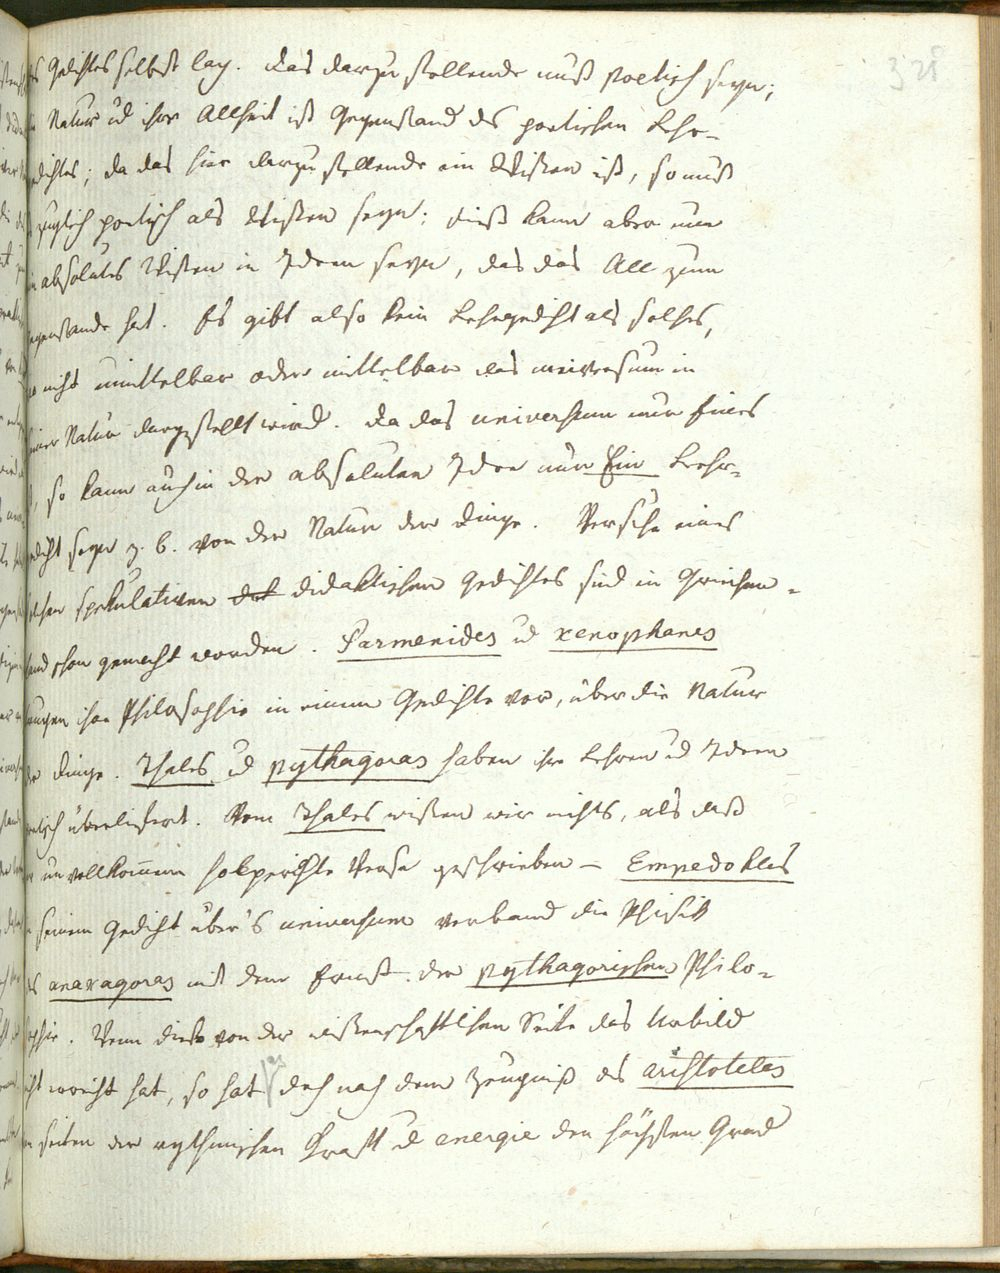 321
des Gedichtes selbst lag. Das darzustellende muß poetisch seyn;
die Natur ud ihre Allheit ist Gegenstand des poetischen Lehr-
gedichtes; da das hier darzustellende ein Wissen ist, so muß
zugleich poetisch als Wissen seyn; dieß kann aber nur
ein absolutes Wissen in Ideen seyn, das das All zum
Gegenstande hat. Es gibt also kein Lehrgedicht als solches,
wo nicht unmittelbar oder mittelbar das universum in
seiner Natur dargestellt wird. Da das universum nur Eines
ist, so kann auch in der absoluten Idee nur Ein Lehr-
gedicht seyn z. b. von der Natur der Dinge. Versuche eines
solchen spekulativen did didaktischen Gedichtes sind in Griechen-
land schon gemacht worden. Parmenides ud xenophanes
trugen ihre Philosophie in einem Gedichte vor, über die Natur
der Dinge. Thales ud pythagoras haben ihre Lehren ud Ideen
poetisch überliefert. Vom Thales wissen wir nichts, als daß
er unvollkommen holperichte Verse geschrieben – Empedokles
in seinem Gedicht über's universum verband die Phisik
des anaxagoras mit dem Ernst der pythagorischen Philo-
sophie. Wenn dieß von der wissenschaftlichen Seite das Urbild
nicht erreicht hat, so hat es doch nach dem Zeugniß des aristoteles
von seiten der rythmischen Kraft ud energie den höchsten Grad